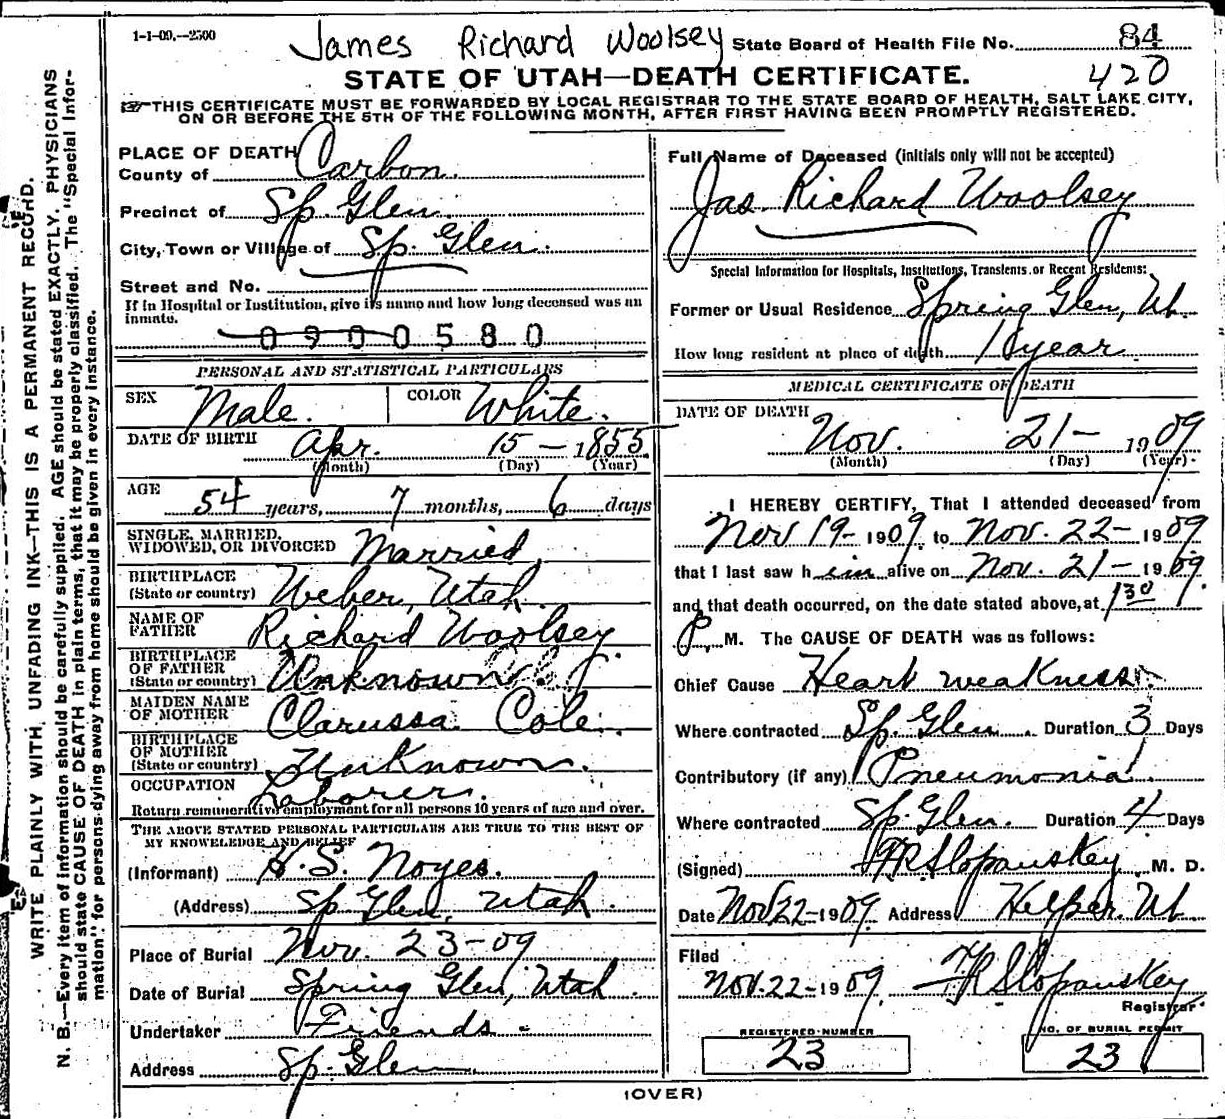 1-1-09.--2500
James Richard Woolsey State Board of Health File No. 84
STATE OF UTAH—DEATH CERTIFICATE. 420
THIS CERTIFICATE MUST BE FORWARDED BY LOCAL REGISTRAR TO THE STATE BOARD OF HEALTH, SALT LAKE CITY,
ON OR BEFORE THE 5TH OF THE FOLLOWING MONTH, AFTER FIRST HAVING BEEN PROMPTLY REGISTERED.
WRITE PLAINLY WITH UNFADING INK—THIS IS A PERMANENT RECORD.
N. B.—Every item of information should be carefully supplied. AGE should be stated EXACTLY. PHYSICIANS
should state CAUSE OF DEATH in plain terms, that it may be properly classified. The "Special Infor-
mation" for persons dying away from home should be given in every instance.
PLACE OF DEATH
County of Carbon.
Precinct of Sp. Glen.
City, Town or Village of Sp. Glen.
Street and No.
If in Hospital or Institution, give its name and how long deceased was an
inmate.
0900580
PERSONAL AND STATISTICAL PARTICULARS
SEX Male. COLOR White.
DATE OF BIRTH Apr. 15 - 1855
(Month) (Day) (Year)
AGE 54 years, 7 months, 6 days
SINGLE, MARRIED,
WIDOWED, OR DIVORCED Married
BIRTHPLACE
(State or country) Weber, Utah
NAME OF
FATHER Richard Woolsey
BIRTHPLACE
OF FATHER
(State or country) Unknown
MAIDEN NAME
OF MOTHER Clarussa Cole.
BIRTHPLACE
OF MOTHER
(State or country) Unknown.
OCCUPATION Laborer.
Return remunerative employment for all persons 10 years of age and over.
THE ABOVE STATED PERSONAL PARTICULARS ARE TRUE TO THE BEST OF
MY KNOWLEDGE AND BELIEF
(Informant) H. S. Noyes.
(Address) Sp. Glen, Utah.
Place of Burial Nov. 23-09
Date of Burial Spring Glen, Utah
Undertaker Friends -
Address Sp. Glen
Full Name of Deceased (initials only will not be accepted)
Jas. Richard Woolsey
Special Information for Hospitals, Institutions, Transients, or Recent Residents:
Former or Usual Residence Spring Glen, Ut.
How long resident at place of death 1 year
MEDICAL CERTIFICATE OF DEATH
DATE OF DEATH
Nov. 21- 1909
(Month) (Day) (Year)
I HEREBY CERTIFY, That I attended deceased from
Nov 19- 1909 to Nov. 22- 1909
that I last saw him alive on Nov. 21- 1909.
and that death occurred, on the date stated above, at 130
P. M. The CAUSE OF DEATH was as follows:
Chief Cause Heart weakness.
Where contracted Sp. Glen. Duration 3 Days
Contributory (if any) Pneumonia.
Where contracted Sp. Glen. Duration 4 Days
(Signed) FR Slopanskey M. D.
Date Nov 22-1909 Address Helper. Ut
Filed
Nov. 22-1909 FR Slopanskey
Registrar
REGISTERED NUMBER
23
NO. OF BURIAL PERMIT
23
(OVER)